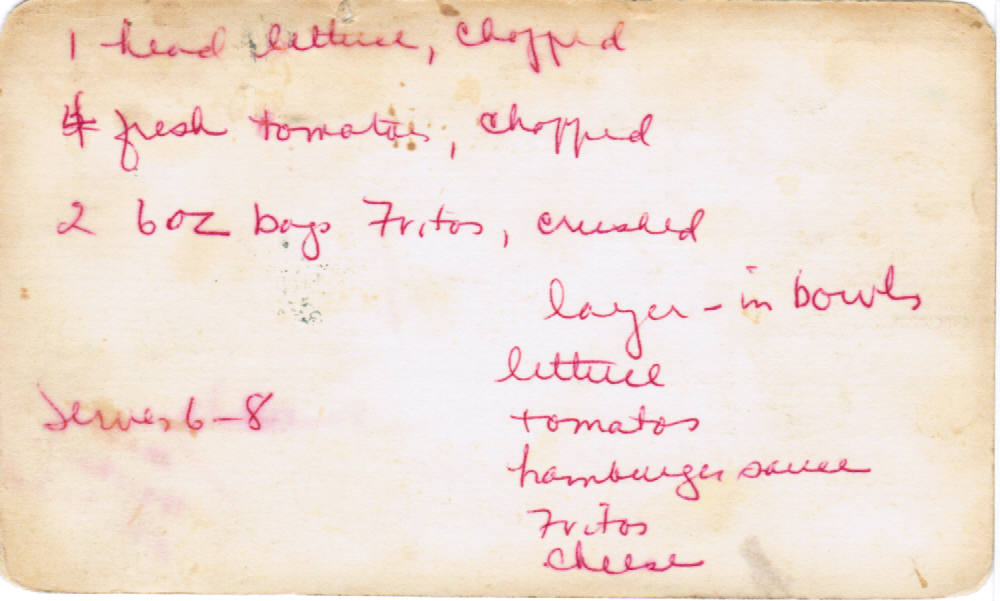 1 head lettuce, chopped
4 fresh tomatoes, chopped
2 6oz bags Fritos, crushed
layer - in bowls
lettuce
Serves 6-8
tomatos
hamburger sauce
Fritos
cheese